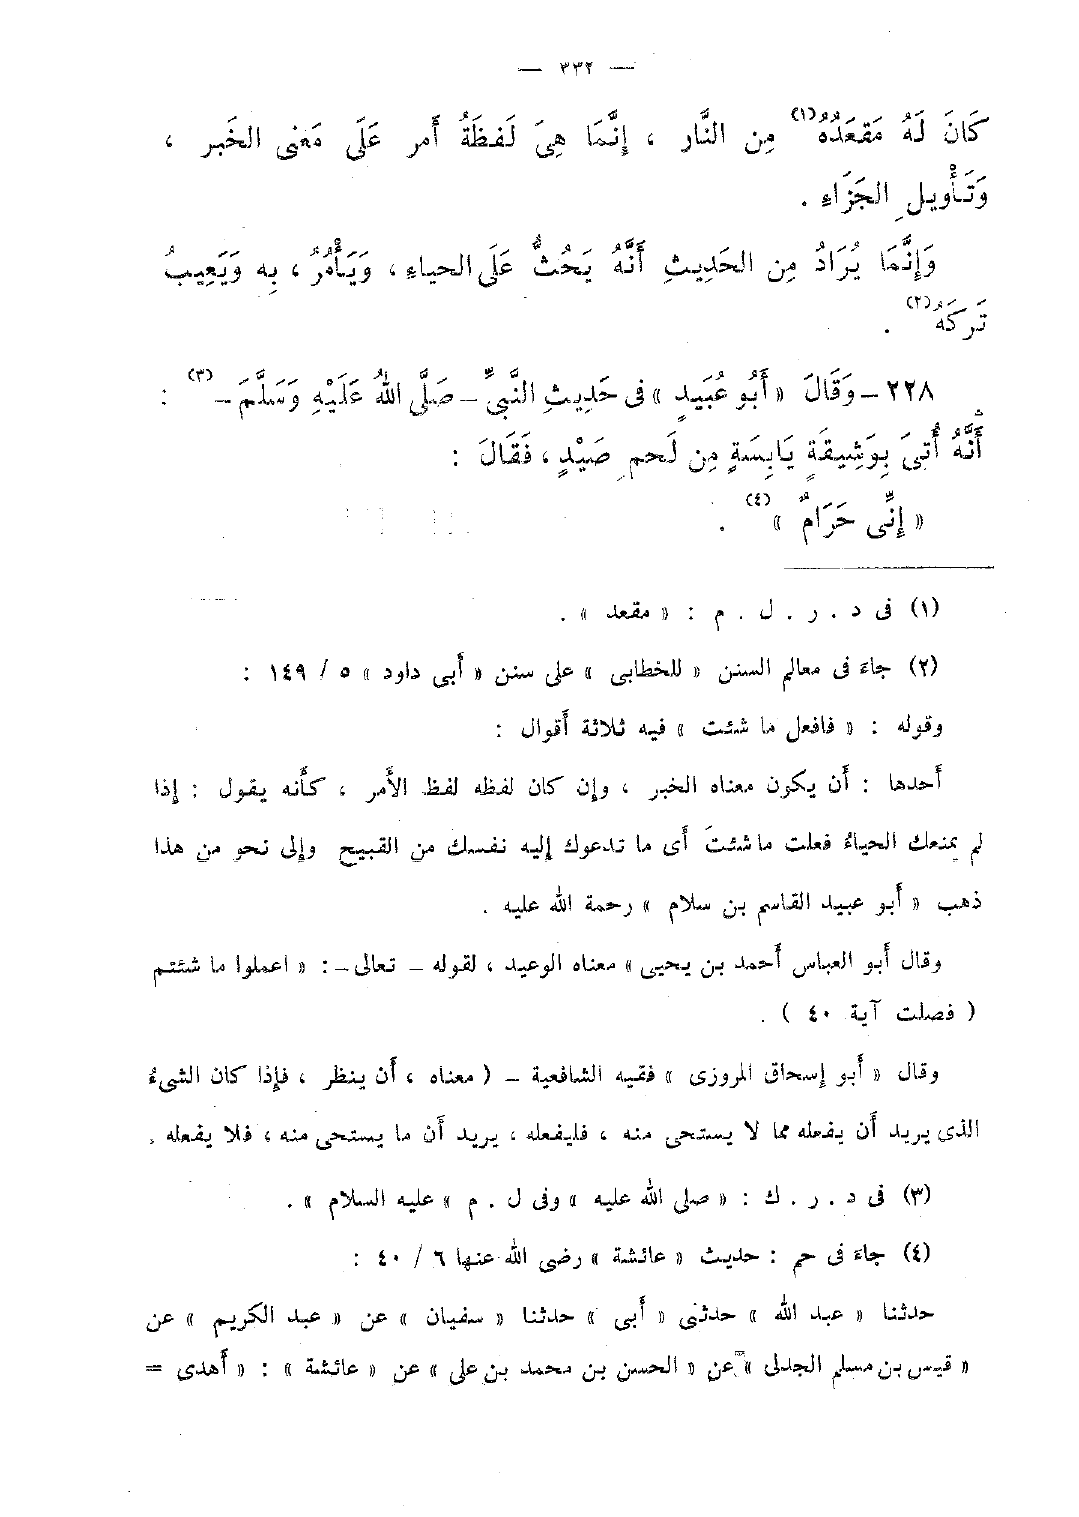 — ٣٣٢ —
كَانَ لَهُ مَقعَدُهُ(١) مِن النَّار ، إِنَّمَا هِىَ لَفظَةُ أَمر عَلَى مَعْنى الخَبر ،
وَتَأْويلِ الجَزَاءِ .
وَإِنَّمَا يُرَادُ مِن الحَدِيثِ أَنَّهُ يَحُثُّ عَلَى الحياءِ ، وَيَأْمُرُ ، بِه وَيَعِيبُ
تَركَهُ(٢) .
٢٢٨ – وَقَالَ « أَبُو عُبَيدٍ » فى حَدِيثِ النَّبىِّ – صَلَّى اللهُ عَلَيْهِ وَسَلَّمَ –(٣) :
أَنَّهُ أُتىَ بِوَشِيقَةٍ يَابِسَةٍ مِن لَحمِ صَيْدٍ ، فَقَالَ :
« إِنِّى حَرَامٌ »(٤) .
(١) فى د . ر . ل . م : « مقعد » .
(٢) جاءَ فى معالم السنن « للخطابى » على سنن « أَبى داود » ٥ / ١٤٩ :
وقوله : « فافعل ما شئت » فيه ثلاثة أَقوال :
أَحدها : أَن يكون معناه الخبر ، وإن كان لفظه لفظ الأَمر ، كأَنه يقول : إِذا
لم يمنعك الحياءُ فعلت ما شئتَ أَى ما تدعوك إليه نفسك من القبيح وإلى نحو من هذا
ذهب « أَبو عبيد القاسم بن سلام » رحمة الله عليه .
وقال أَبو العباس أَحمد بن يحيى » معناه الوعيد ، لقوله – تعالى – : « اعملوا ما شئتم
( فصلت آية ٤٠ ) .
وقال « أَبو إسحاق المروزى » فقيه الشافعية – ( معناه ، أَن ينظر ، فإذا كان الشىءُ
الذى يريد أَن يفعله مما لا يستحى منه ، فليفعله ، يريد أَن ما يستحى منه ، فلا يفعله .
(٣) فى د . ر . ك : « صلى الله عليه » وفى ل . م » عليه السلام » .
(٤) جاءَ فى حم : حديث « عائشة » رضى الله عنها ٦ / ٤٠ :
حدثنا « عبد الله » حدثنى « أَبى » حدثنا « سفيان » عن « عبد الكريم » عن
« قيس بن مسلم الجدلى » عن « الحسن بن محمد بن على » عن « عائشة » : « أَهدى =